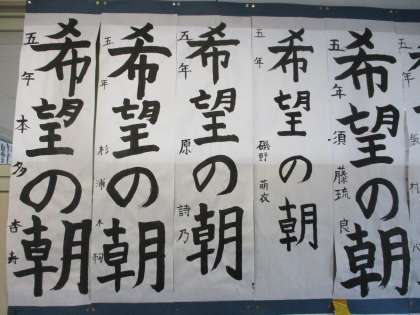 希望の朝
五年 須藤琉良
希望の朝
五年 磯野 萌衣
希望の朝
五年 原 詩乃
希望の朝
五年 杉浦
希望の朝
五年 本多